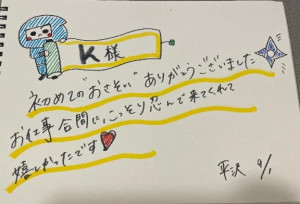 K様
初めての"おさそい"ありがとうございました
お仕事合間に、こっそり忍んで来てくれて
嬉しかったです
平沢 9/1